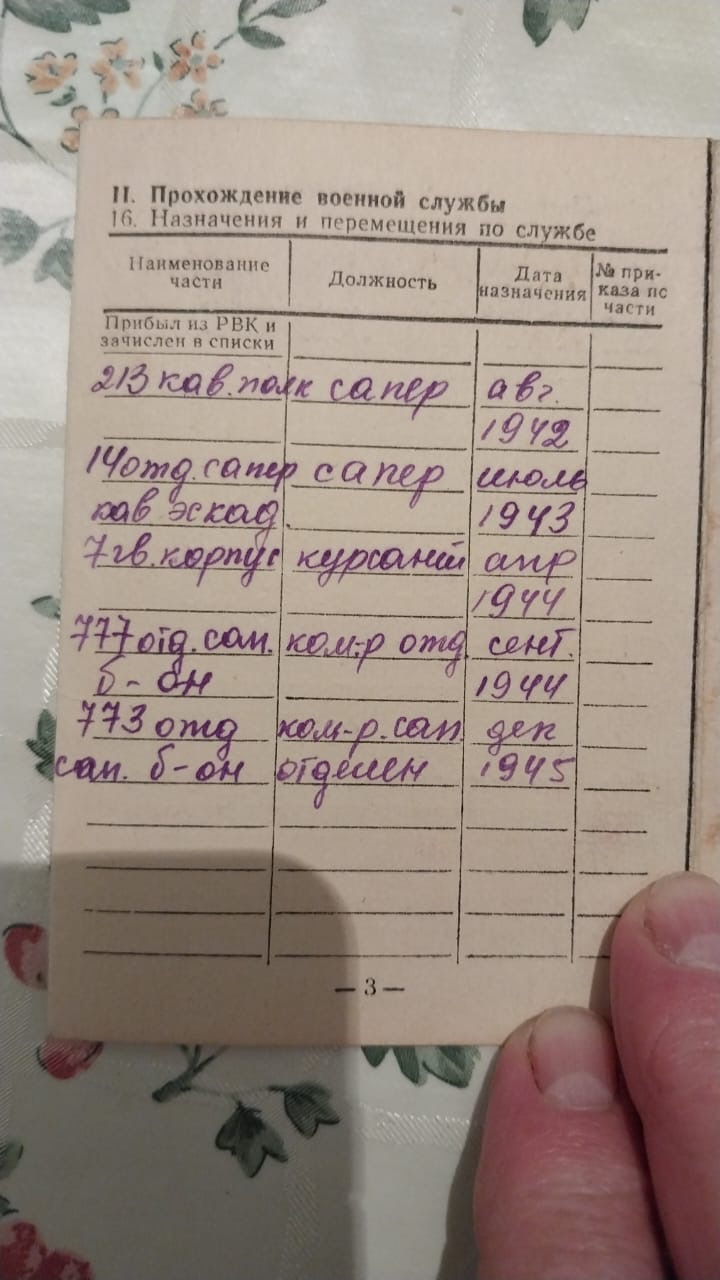 II. Прохождение военной службы
16. Назначения и перемещения по службе
Наименование части Должность Дата назначения № приказа по части
Прибыл из РВК и
зачислен в списки
213 кав. полк сапер авг.
1942
14 отд. сапер сапер июль
кав эскад. 1943
7 гв. корпус курсант апр
1944
777 отд. сап. ком-р отд сент.
б-он 1944
773 отд ком-р. сап. дек
сап. б-он отделен 1945
— 3 —